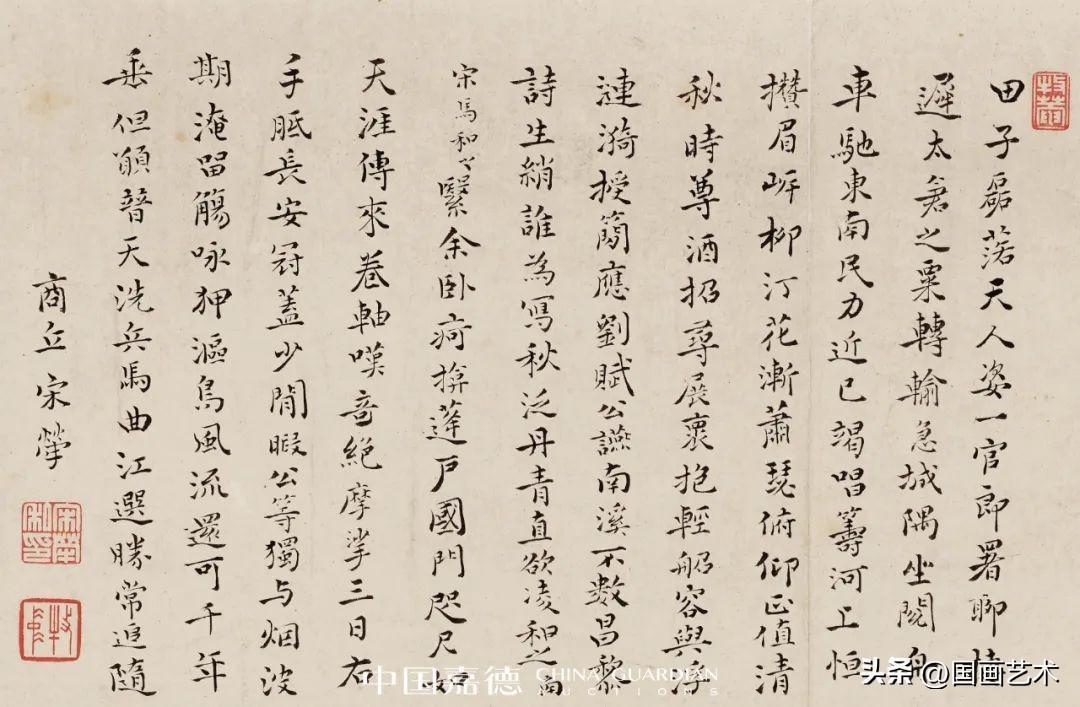 田子磊落天人姿一官郎署聊棲
遲太倉之粟轉輸急城隅坐閱舟
車馳東南民力近已竭唱籌河上恒
攢眉岍柳汀花漸蕭瑟俯仰正值清
秋時尊酒招尋展褱抱輕船容與浮
漣漪授簡應劉賦公讌南溪不數昌黎
詩生綃誰為寫秋泛丹青直欲凌和之南
宋馬和之繄余臥疴揜蓬戶國門咫尺如
天涯傳來卷軸嘆奇絕摩挲三日右
手胝長安冠蓋少閒暇公等獨与烟波
期淹留觴咏狎漚鳥風流還可千年
垂但願普天洗兵馬曲江選勝常追隨
商丘宋犖
宋犖私印
中国嘉德 CHINA GUARDIAN
AUCTIONS
头条 @国画艺术